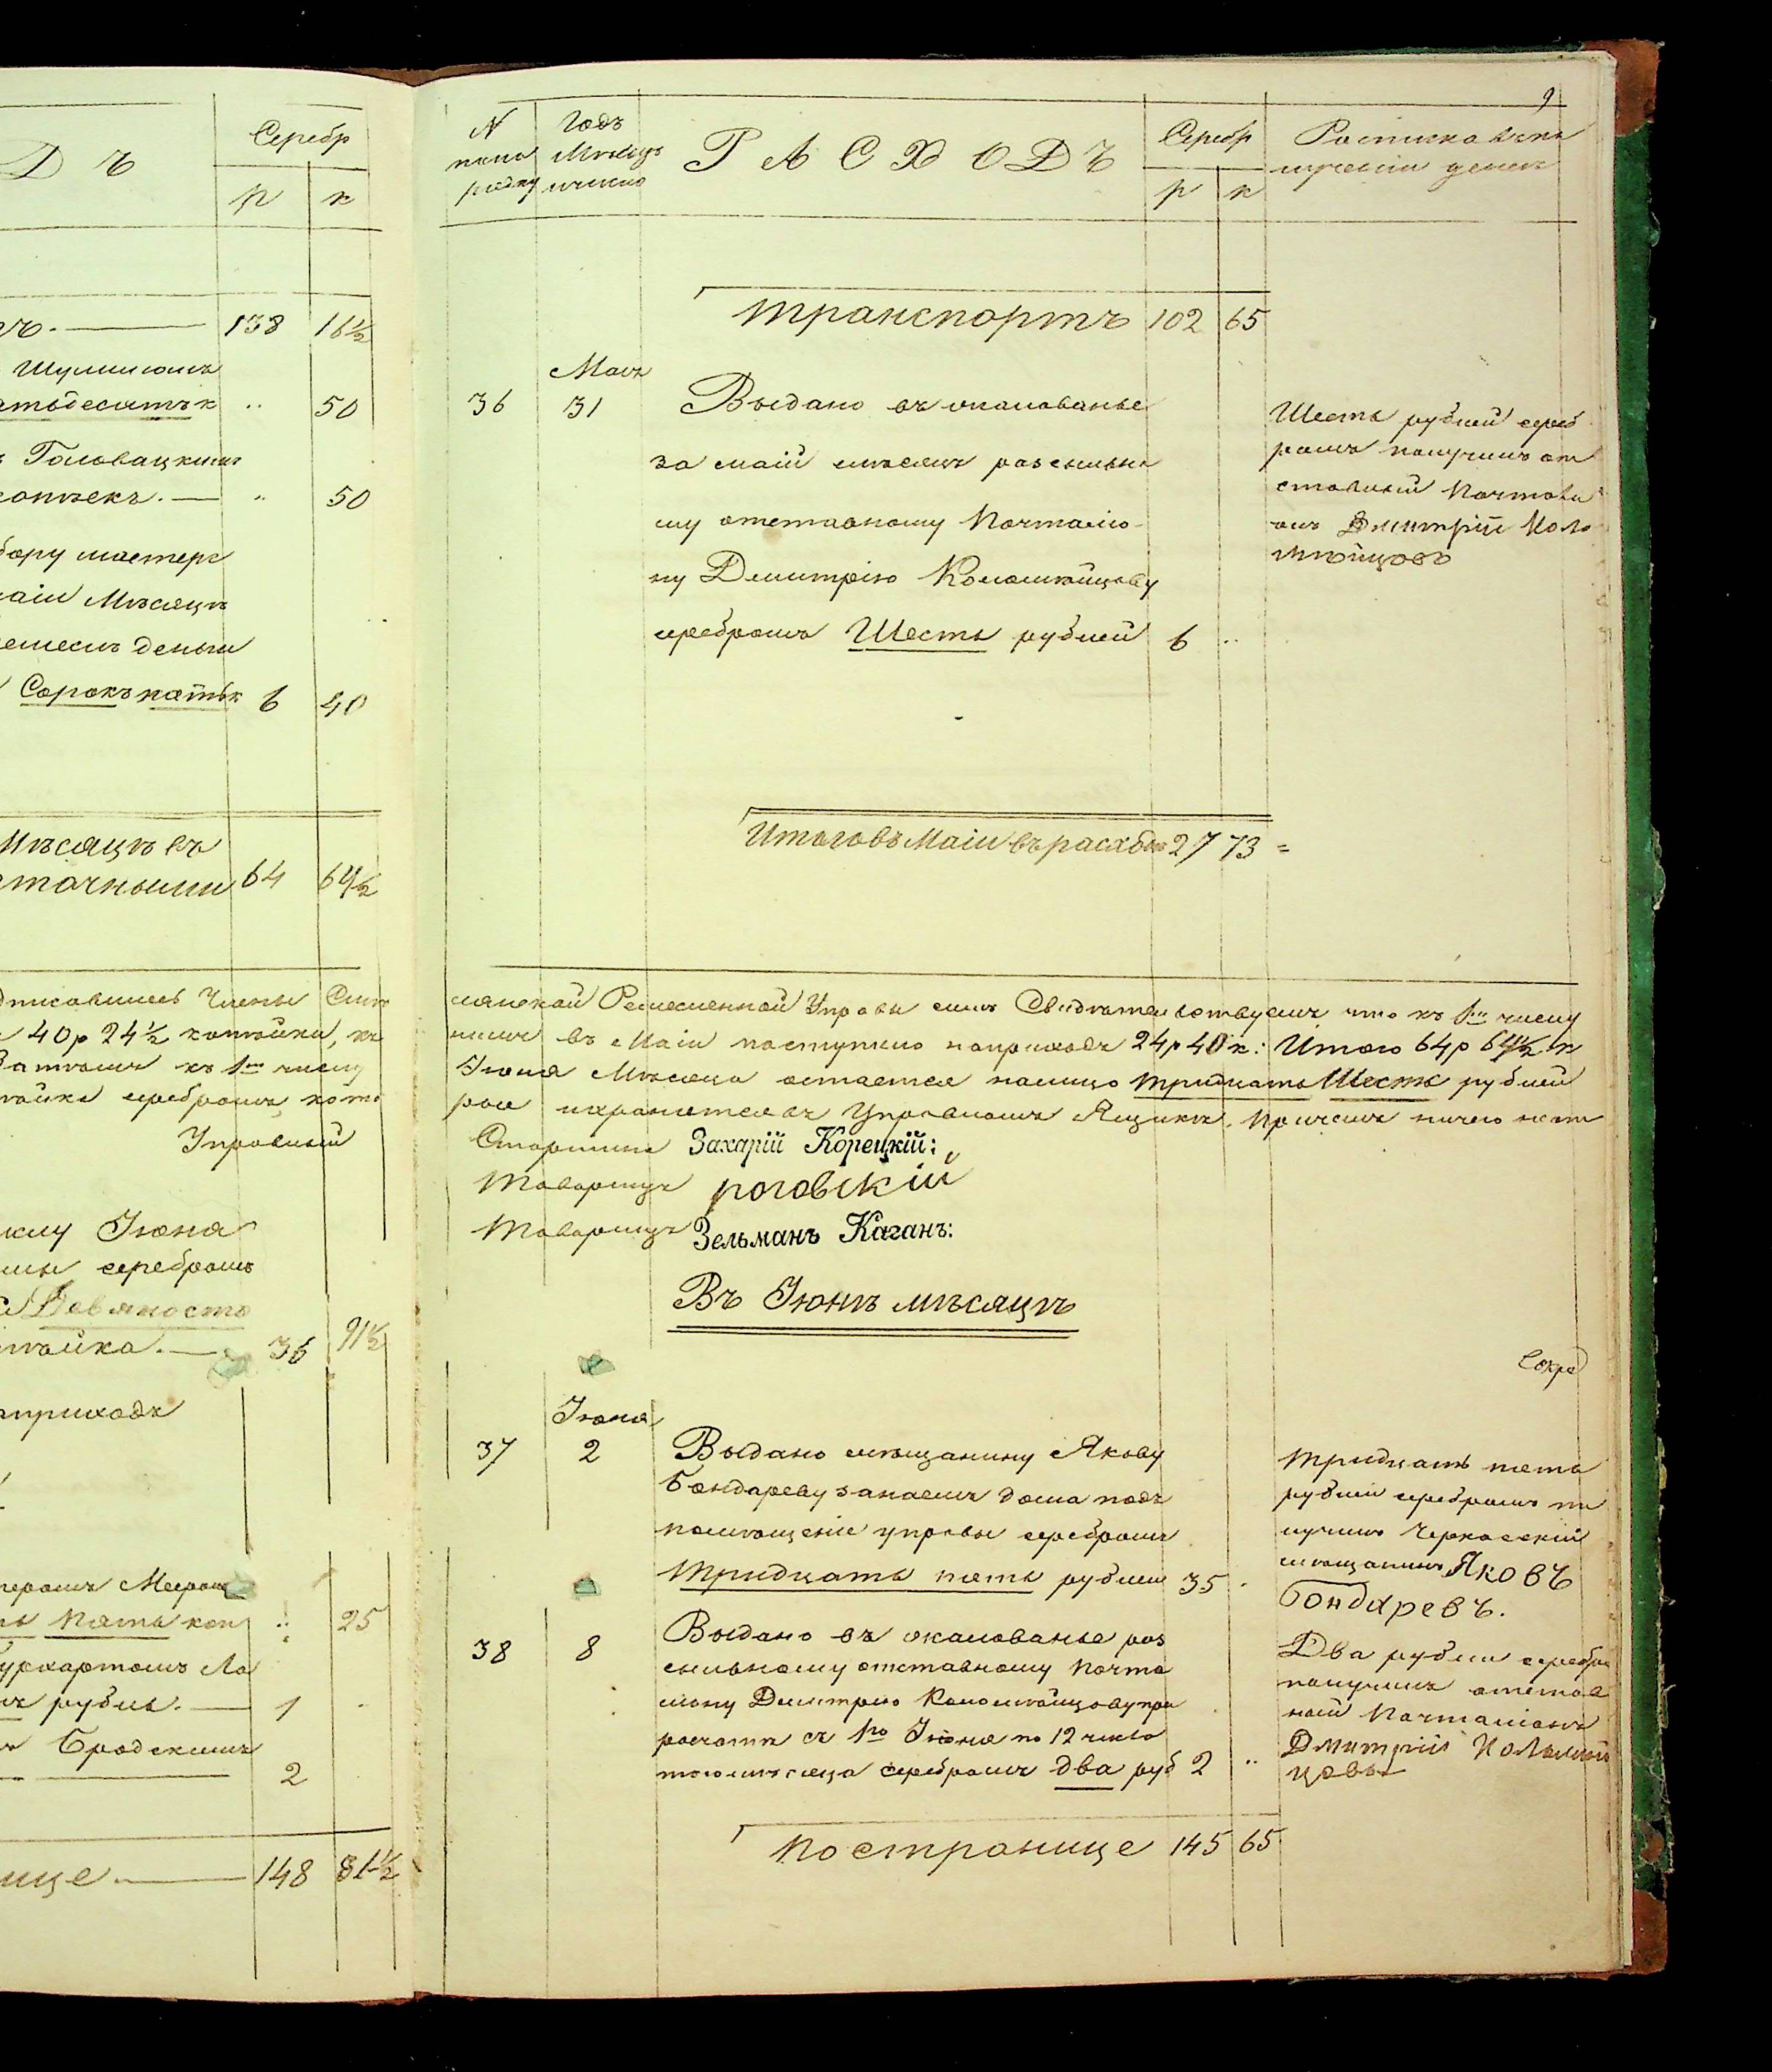 Д Ъ
Серебр
р к
138 16½
Шулимомъ
50
Головацкимъ
копѣекъ. — 50
бору мастерс
маіи Мѣсяцъ
деньги
Сорокъ копѣк 6 40
Мѣсяцъ въ
64 64½
дписавшіесь Члены Сим
40р 24½ копѣйки, къ
Затѣмъ къ 1му числу
пѣйка серебромъ, кото
Управный
Іюня
серебромъ
Девяносто
пѣйка. — 36 91½
априходъ
Пять коп 25
рубль. — 1
Бродскимъ
2
ице — 148 81½
9
N
попо
рядку
Годъ
Мѣсяцъ
ичисло
Р А С Х О Д Ъ
Серебр
р к
Росписка въ по
лученіи денегъ
транспортъ 102 65
Маія
36 31 Выдано въ жалованье
за маій мѣсяцъ розсыльно
му отставному Почталіо-
ну Дмитрію Коломѣйцову
серебромъ Шесть рубле́й 6 ..
Шесть рублей сереб
ромъ получилъ от
ставный Почтали
онъ Дмитрій Коло
мѣйцовъ
Итого въ Маіи въ расходѣ 27 73 =
сянской Ремесленной Управы симъ Свидѣтельствуемъ что къ 1му числу
въ Маіи поступило наприходъ 24р 40 к: Итого 64р 64½ к
Іюня Мѣсяца остается налицо тридцать Шесть рублей
рое ихранится въ Управномъ Ящикѣ. Причемъ ничего
Старшина Захарій Корецкій:
Товарищъ роговскій
Товарищъ Зельманъ Каганъ:
Въ Іюнѣ мѣсяцѣ
Іюня
37 2 Выдано мѣщанину Якову
Бондареву занаемъ дома подъ
помѣщеніе управы серебромъ
Тридцать пять рублей 35
Тридцать пять
рублей серебромъ по
лучилъ Черкасскій
мѣщанинъ Яковъ
Бондаревъ.
38 8 Выдано въ жалованье роз
сыльному отставному почта
ліону Дмитрію Коломѣйцову при
розчотѣ съ 1го Іюня по 12 число
того мѣсяца серебромъ два руб 2 ..
Два рубли серебро
получилъ отстав
ной Почталіонъ
Дмитрій Коломѣй
цовъ
по странице 145 65